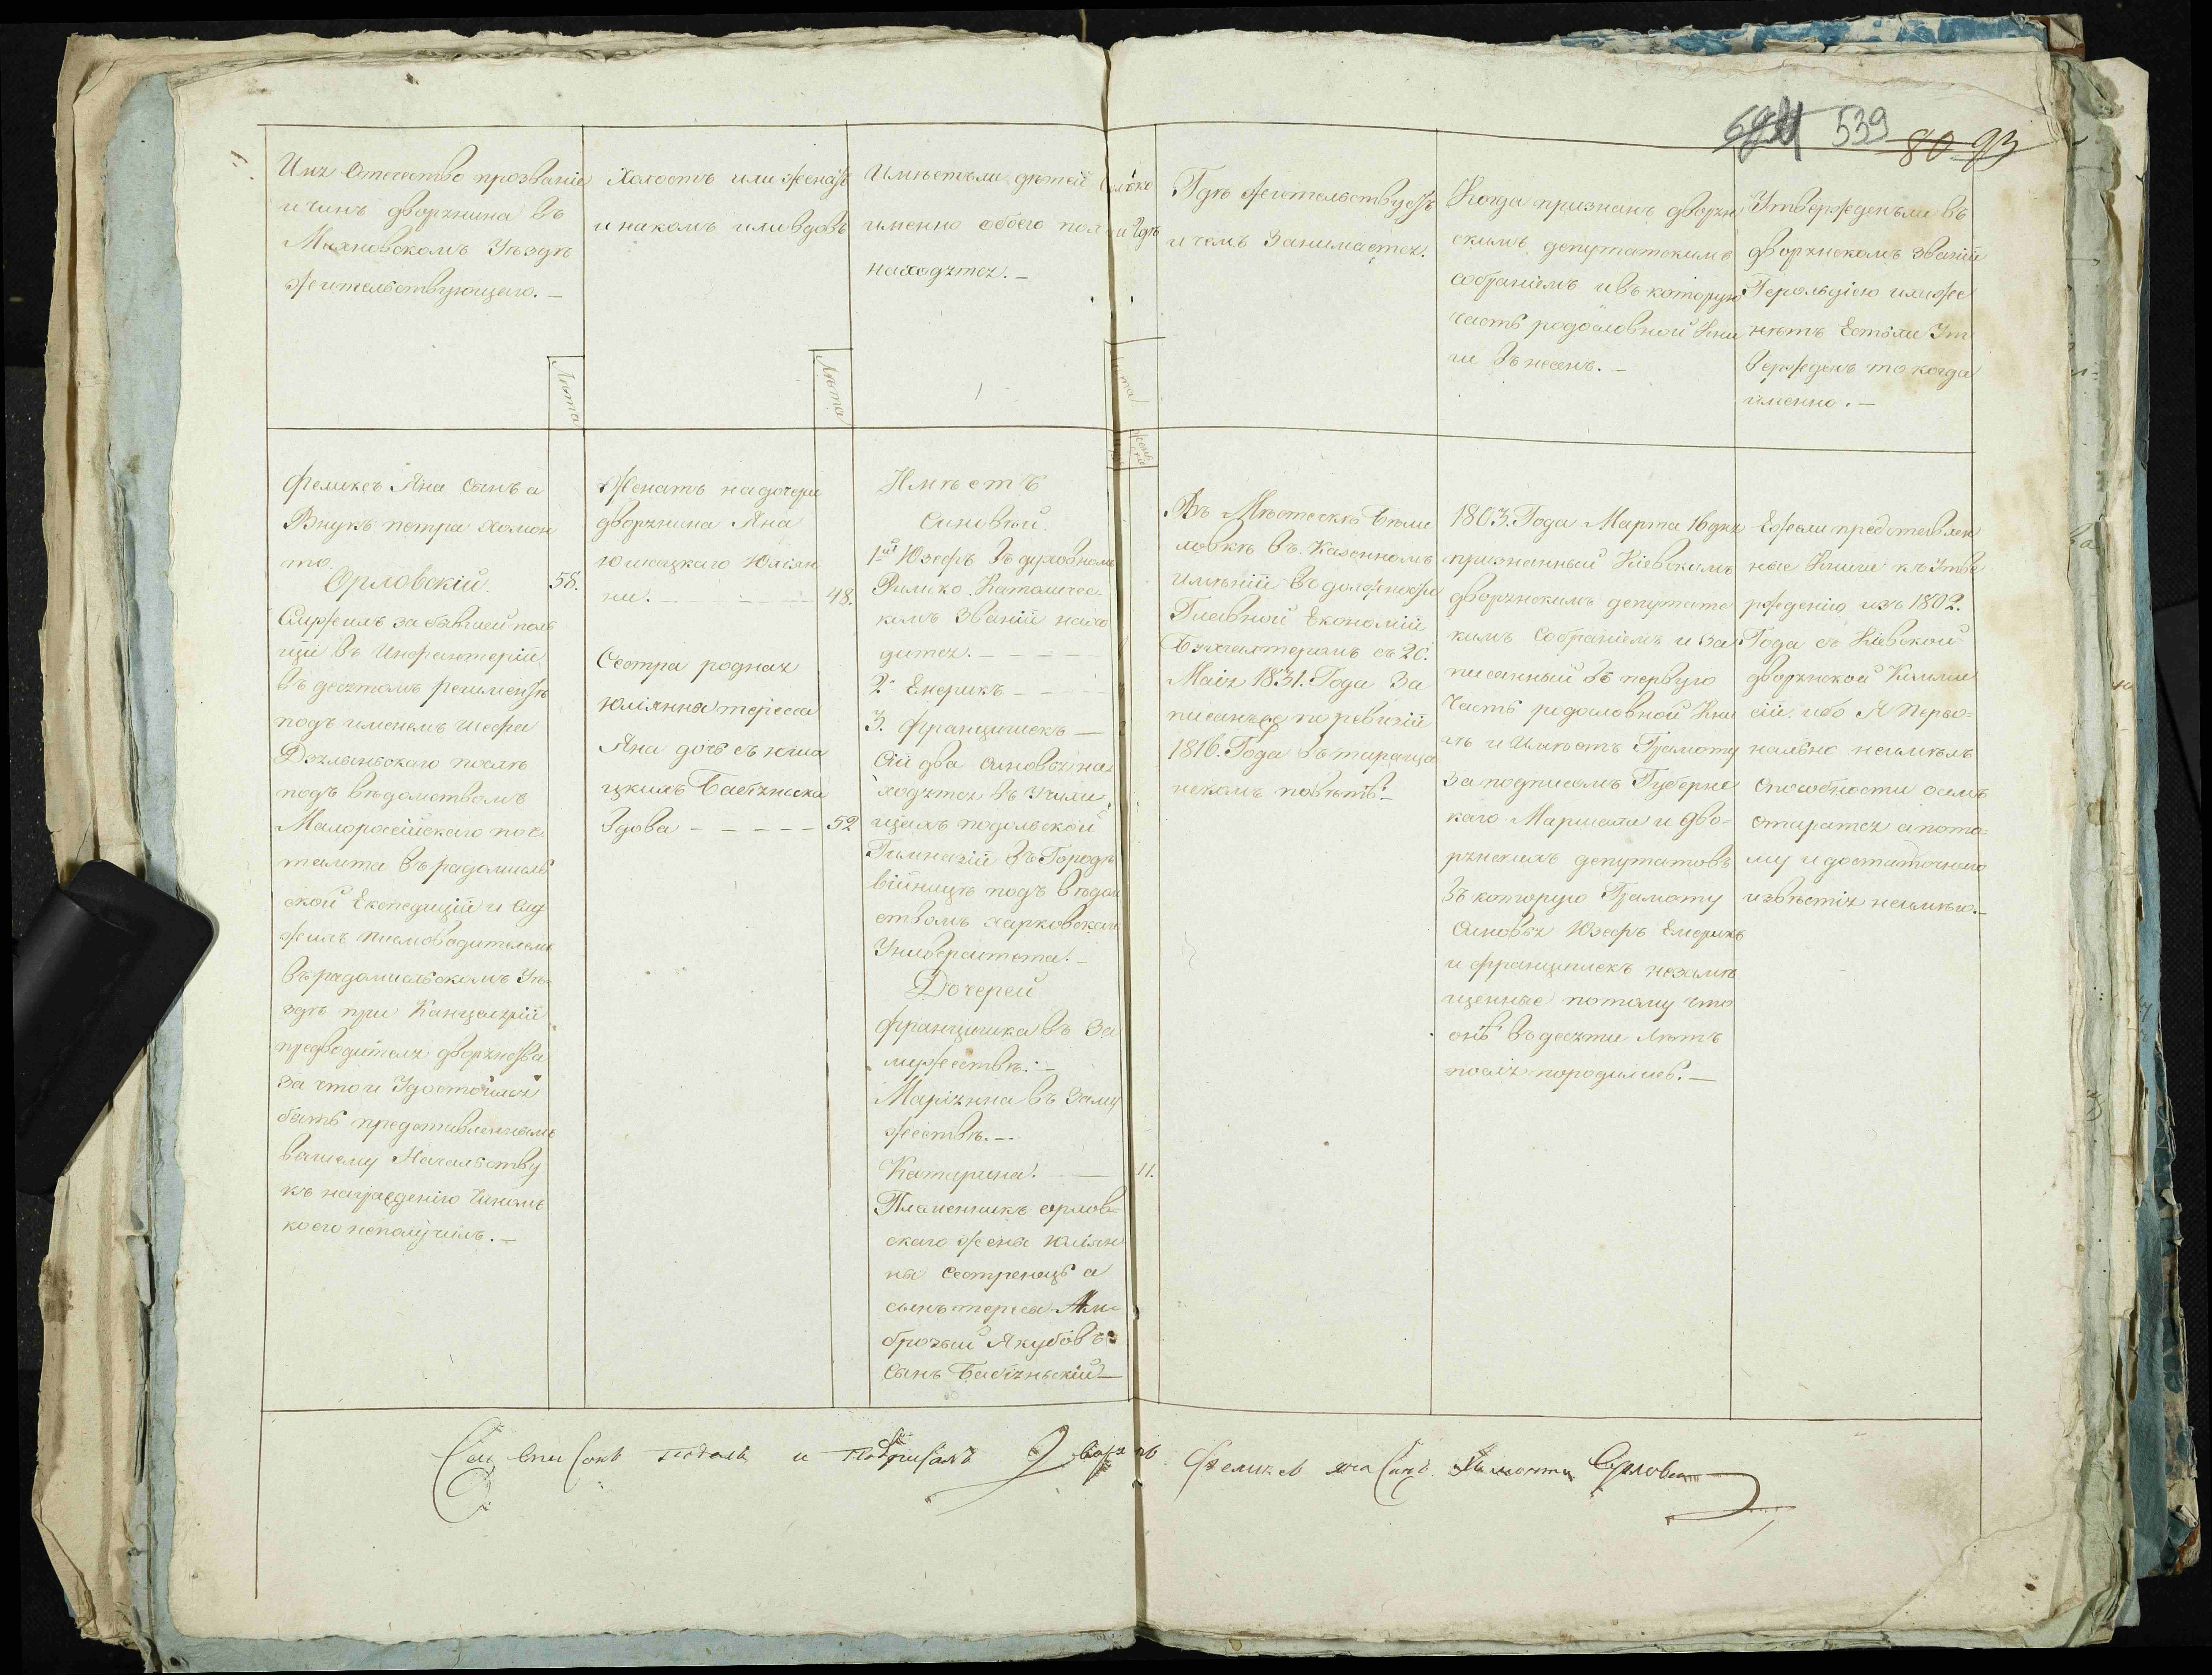 539
80 93
Имя Отечество прозваніе
и чинъ дворянина въ
Махновскомъ Уѣздѣ
жительствующаго. —
Лѣта
Холостъ или женатъ
и накомъ или вдовъ
Лѣта
Имѣетъли дѣтей сколько
именно обоего пола и где
находятся. —
Лѣта
Гдѣ жительствуетъ
и чемъ Занимается.
Когда признанъ дворян
скимъ депутатскимъ
собраніемъ и въ которую
часть родословной Кни
ги внесенъ. —
Утвержденъли въ
дворянскомъ званіи
Герольдіею илиже
нѣтъ Естъли Ут
вержденъ то когда
именно. —
Феликсъ Яна Сынъ а
Внукъ петра холон
то
Орловскій. 58.
Служилъ за бывшей поль
щи въ Инфантеріи
въ десятомъ регименте
подъ именемъ Шефа
Дзялыньскаго послѣ
подъ вѣдомствомъ
Малороссійскаго поч
тамта въ радомысль
ской Експедиціи и слу
жилъ писмоводителемъ
въ радомысльскомъ Уѣ
здѣ при Канцеляріи
предводителя дворянства
за что и Удостоился
быть представленнымъ
вышему Началству
къ награжденію Чиномъ
коего неполучилъ. —
Женатъ на дочери
дворянина Яна
Юшицкаго Юліан
ни. — — — 48.
Сестра родная
Юліянна тереса
Яна дочь съ юши
цкихъ Бабѣнска
Вдова — — — — 52
Имѣетъ
Синовей.
1й Юзефъ въ духовномъ
Римско Католичес
комъ Званіи нахо
дится. — — — —
2. Емерикъ — — —
3. Францишекъ —
Сіи два синовья на
ходятся въ Учили
щахъ подольской
Гимназіи въ Городѣ
Війницѣ подъ вѣдом
ствомъ харковскаго
Университета. —
Дочерей
Францишка въ За
мужествѣ. —
Маріянна въ Заму
жествѣ. —
Катарина. — 11.
Племенникъ орлов=
скаго жены Юліян
ны Сестренецъ а
сынъ тересы Ам
брожый Якубовъ
Сынъ Бабѣньскій —
Въ Мѣстечкѣ Бѣли
ловкѣ въ Казенномъ
имѣніи въ должности
Главной Економіи
Бухгалтеромъ съ 20.
Маія 1831. Года За
писанъ по ревизіи
1816. Года въ тараща
нскомъ повѣтѣ. —
1803. Года Марта 16 дня
признанный Кіевскимъ
дворянскимъ депутатс
кимъ Собраніемъ и за
писанный въ первую
Часть родословной Кни
гѣ и Имѣетъ Грамоту
За подписомъ Губернс
каго Маршала и дво=
рянскихъ депутатовъ
въ которую Грамоту
Синовья Юзефъ Емерикъ
и Францишекъ незамѣ
щенные потому что
онѣ въ десяти лѣтъ
послѣ породились. —
Ежели представлен
ные Книги къ Утве
ржденію изъ 1802.
Года съ Кіевской
дворянской Комми
сіи. ибо Я Перво=
нально неимѣлъ
Способности осемъ
старатся апото=
му и достаточнаго
извѣстія неимѣю. —
Сей Списокъ подалъ и подписалъ Дворянинъ Феликсъ яна Синъ Орловск